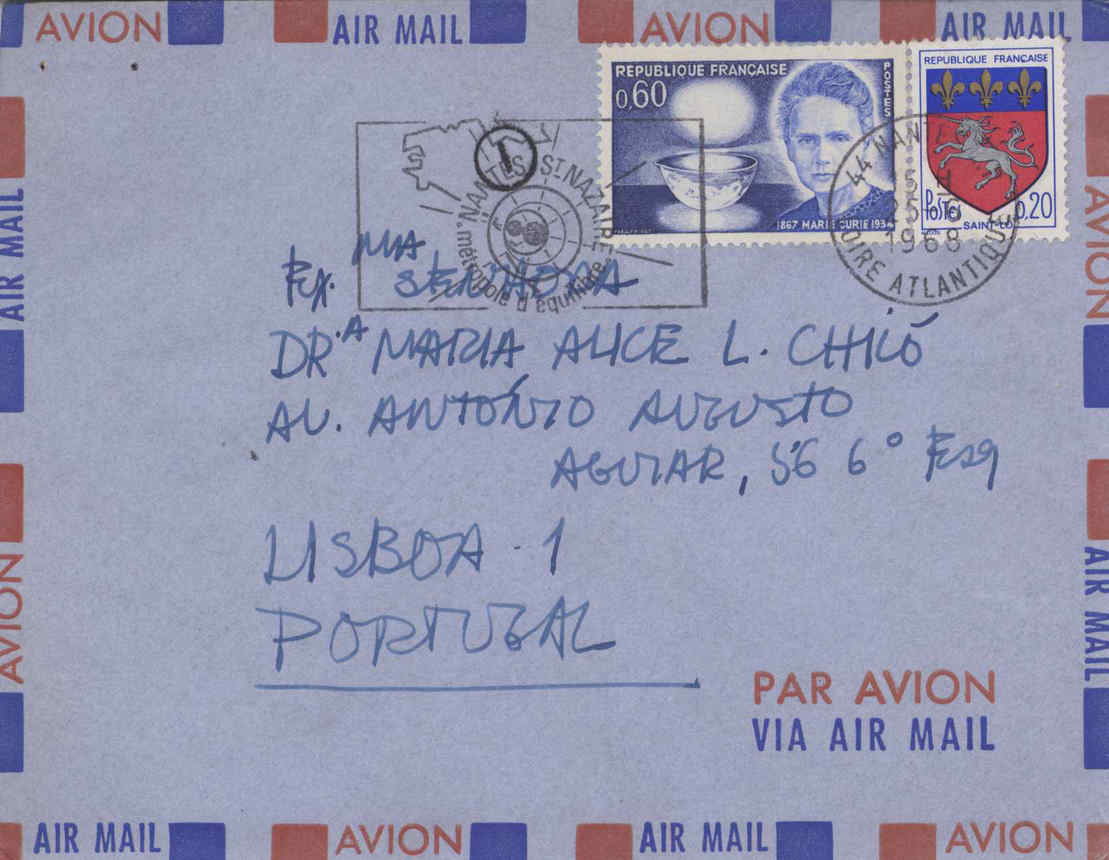 AVION AIR MAIL AVION AIR MAIL
REPUBLIQUE FRANÇAISE
0,60
POSTES
1867 MARIE CURIE 1934
REPUBLIQUE FRANÇAISE
Postes 0,20
SAINT-LO
44 NANTES
25-6
1968
LOIRE ATLANTIQUE
T
NANTES ST NAZAIRE
métropole d'équilibre
Ex.MA SENHORA
DR.A MARIA ALICE L. CHICÓ
AV. ANTÓNIO AUGUSTO
AGUIAR, 56 6° Esq
LISBOA 1
PORTUGAL
PAR AVION
VIA AIR MAIL
AIR MAIL
AVION
AVION
AIR MAIL
AIR MAIL AVION AIR MAIL AVION